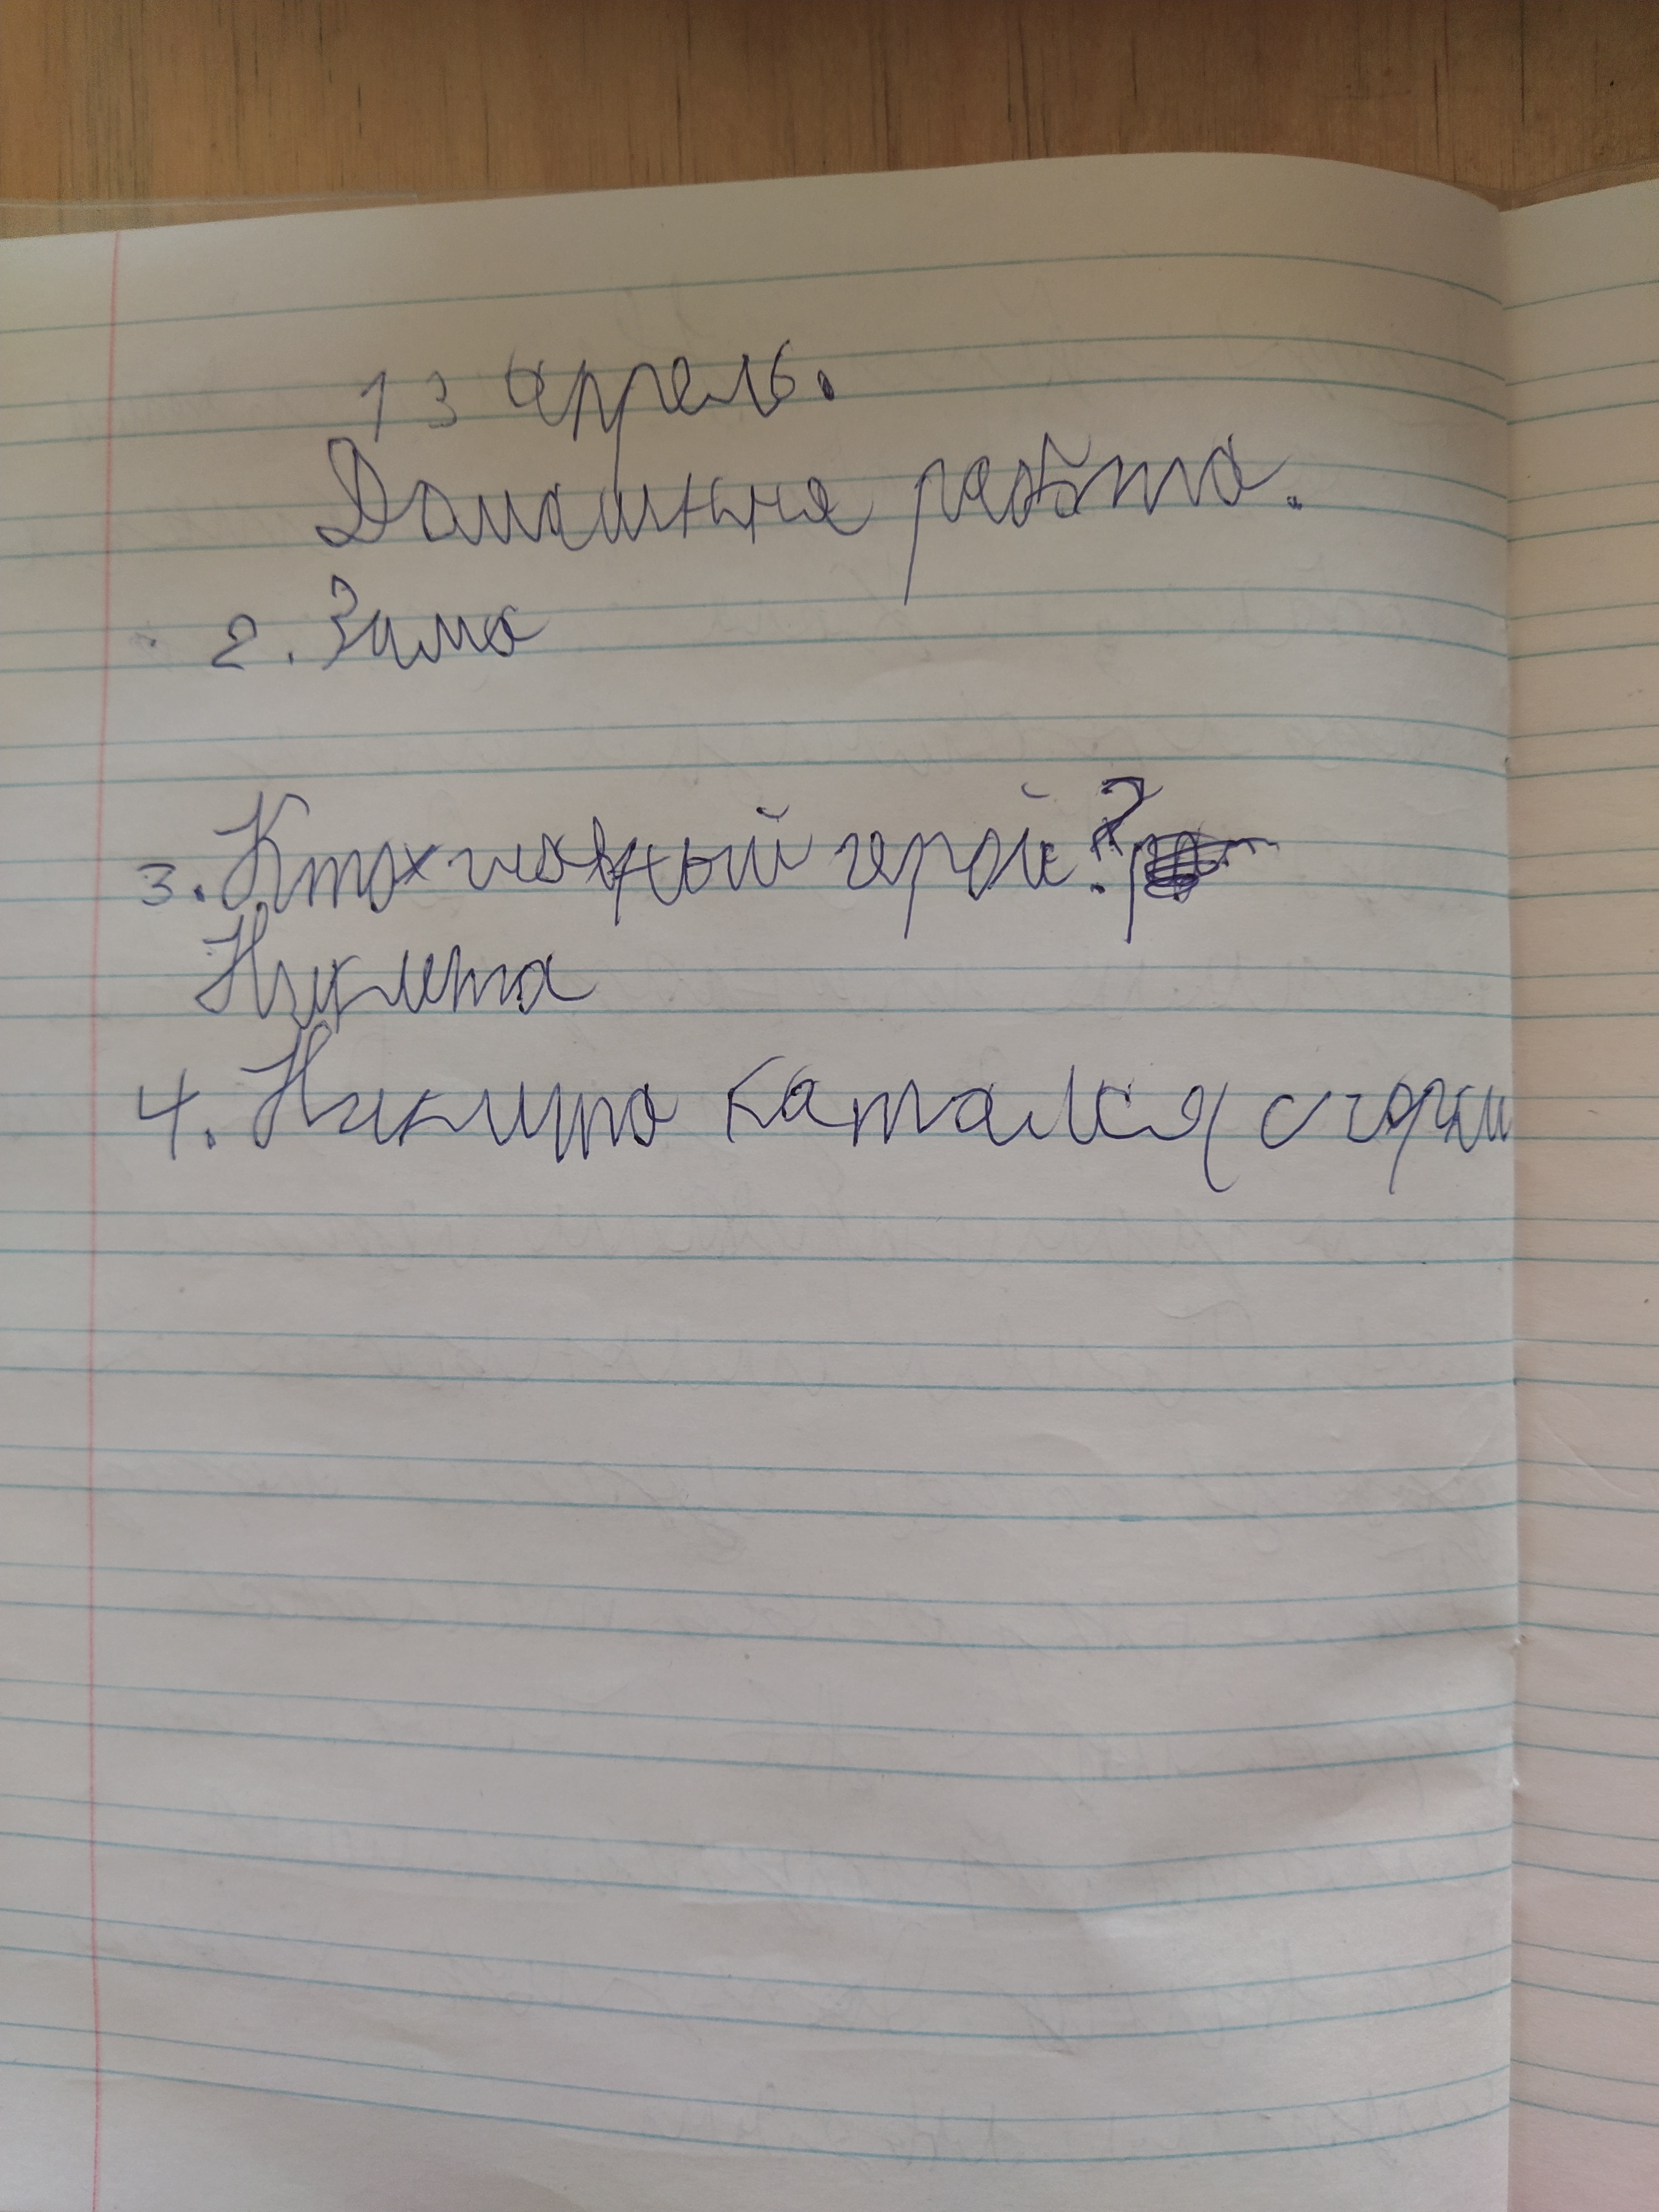 13 апрель.
Домашняя работа.
2. Зима
3. Кто главный герой?
Никита
4. Никита катался с горки